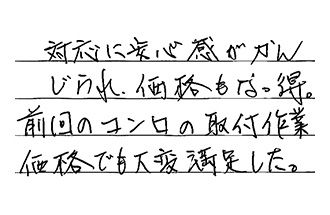 対応に安心感がかん
じられ、価格もなっ得。
前回のコンロの取付作業
価格でも大変満足した。